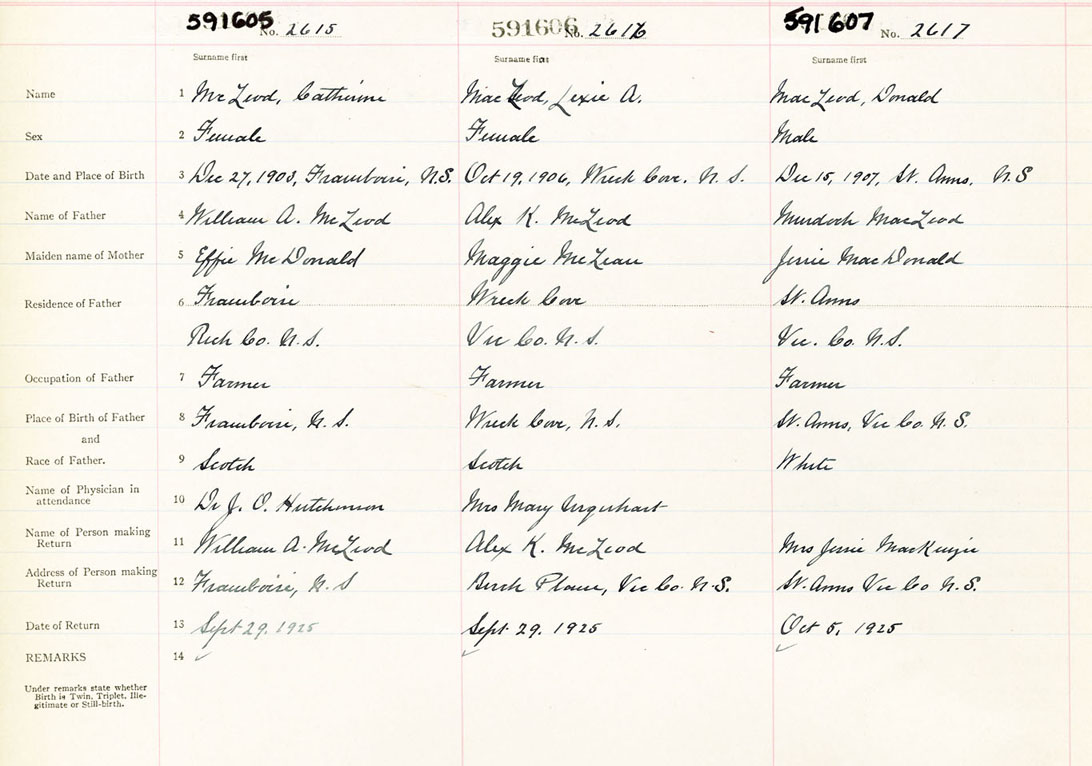 591605 No. 2615 591606 No. 2616 591607 No. 2617
Surname first Surname first Surname first
Name 1 McLeod, Catherine MacLeod, Lexie A. MacLeod, Donald
Sex 2 Female Female Male
Date and Place of Birth 3 Dec 27, 1903, Framboise, N.S. Oct 19, 1906, Wreck Cove. N. S. Dec 15, 1907, St. Anns. N.S
Name of Father 4 William A. McLeod Alex K. McLeod Murdoch MacLeod
Maiden name of Mother 5 Effie McDonald Maggie McLean Jessie MacDonald
Residence of Father 6 Framboise Wreck Cove St. Anns
Rich Co. N.S. Vic Co. N.S. Vic. Co. N.S.
Occupation of Father 7 Farmer Farmer Farmer
Place of Birth of Father 8 Framboise, N. S. Wreck Cove, N.S. St. Anns, Vic Co. N.S.
and
Race of Father. 9 Scotch Scotch White
Name of Physician in
attendance 10 Dr J. O. Hutchinson Mrs Mary Urquhart
Name of Person making
Return 11 William A. McLeod Alex K. McLeod Mrs Jessie MacKenzie
Address of Person making
Return 12 Framboise, N. S Birch Plain, Vic Co. N.S. St. Anns Vic Co N.S.
Date of Return 13 Sept 29. 1925 Sept. 29. 1925 Oct 5, 1925
REMARKS 14
Under remarks state whether
Birth is Twin, Triplet, Ille-
gitimate or Still-birth.